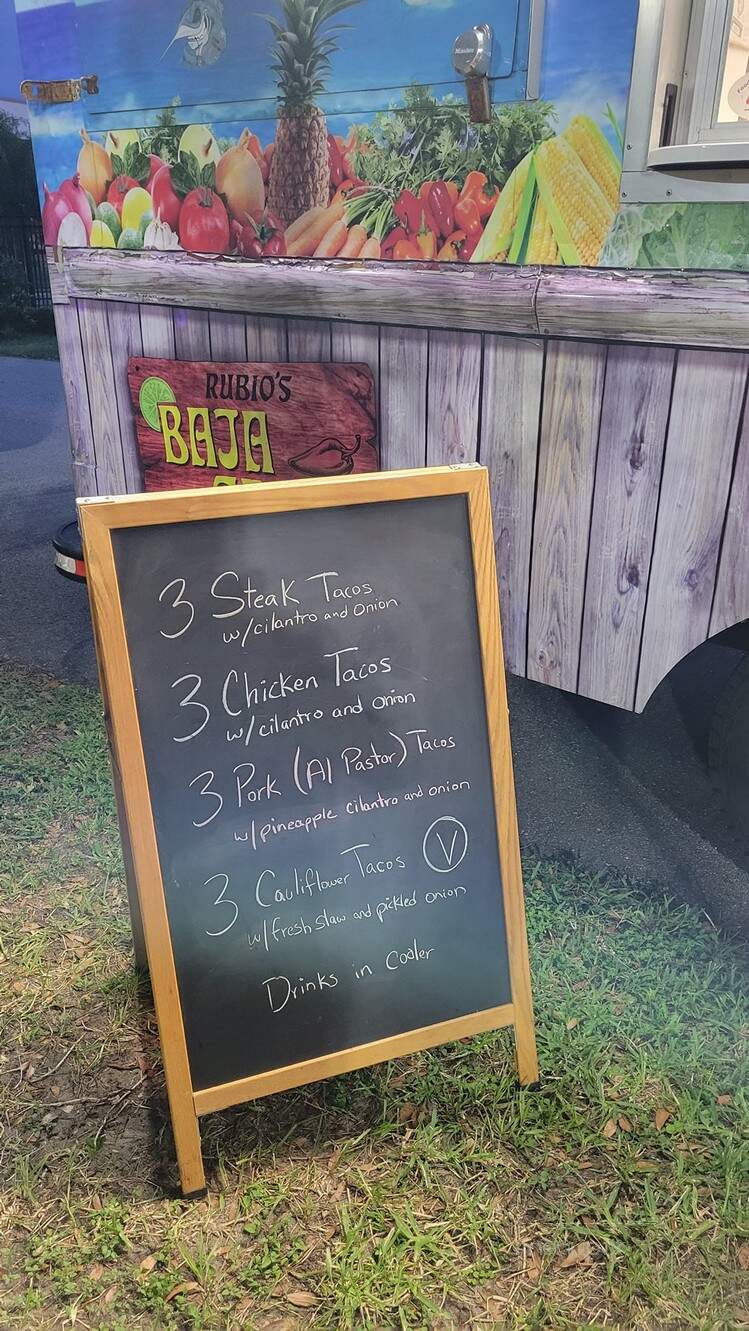 RUBIO'S
BAJA
3 Steak Tacos
w/cilantro and Onion
3 Chicken Tacos
w/cilantro and onion
3 Pork (Al Pastor) Tacos
w/pineapple cilantro and onion
3 Cauliflower Tacos V
w/fresh slaw and pickled onion
Drinks in Cooler